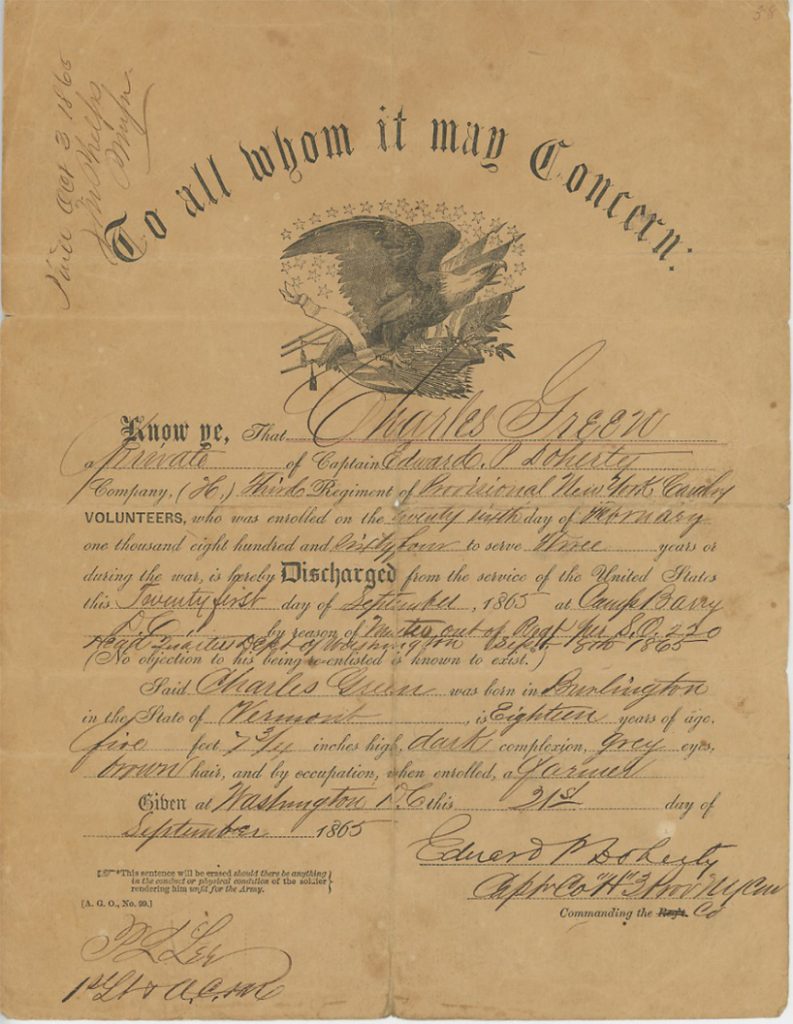 38
Oct 3 1865
To all whom it may Concern:
Know ye, That Charles Green
a Private of Captain Edward. P Doherty
Company, (H,) Third Regiment of Provisional New York Cavalry
VOLUNTEERS, who was enrolled on the twenty sixth day of February
one thousand eight hundred and sixty four to serve Three years or
during the war, is hereby Discharged from the service of the United States
this Twenty first day of September, 1865 at Camp Barry
D.C. by reason of Muster out of Regt per S.O. 220
Head Quarters Dept of Washington Sept 1865
(No objection to his being re-enlisted is known to exist.)
Said Charles Green was born in Burlington
in the State of Vermont, is Eighteen years of age,
five feet 7 3/4 inches high, dark complexion, grey eyes,
brown hair, and by occupation, when enrolled, a Farmer
Given at Washington D.C this 21st day of
September 1865
Edward P Doherty
Capt Co "H" 3 Prov N.Y Cav
Commanding the Regt. Co
*This sentence will be erased should there be anything
in the conduct or physical condition of the soldier
rendering him unfit for the Army.
[A. G. O., No. 99.]
Lee
1st Lt & A.C.M